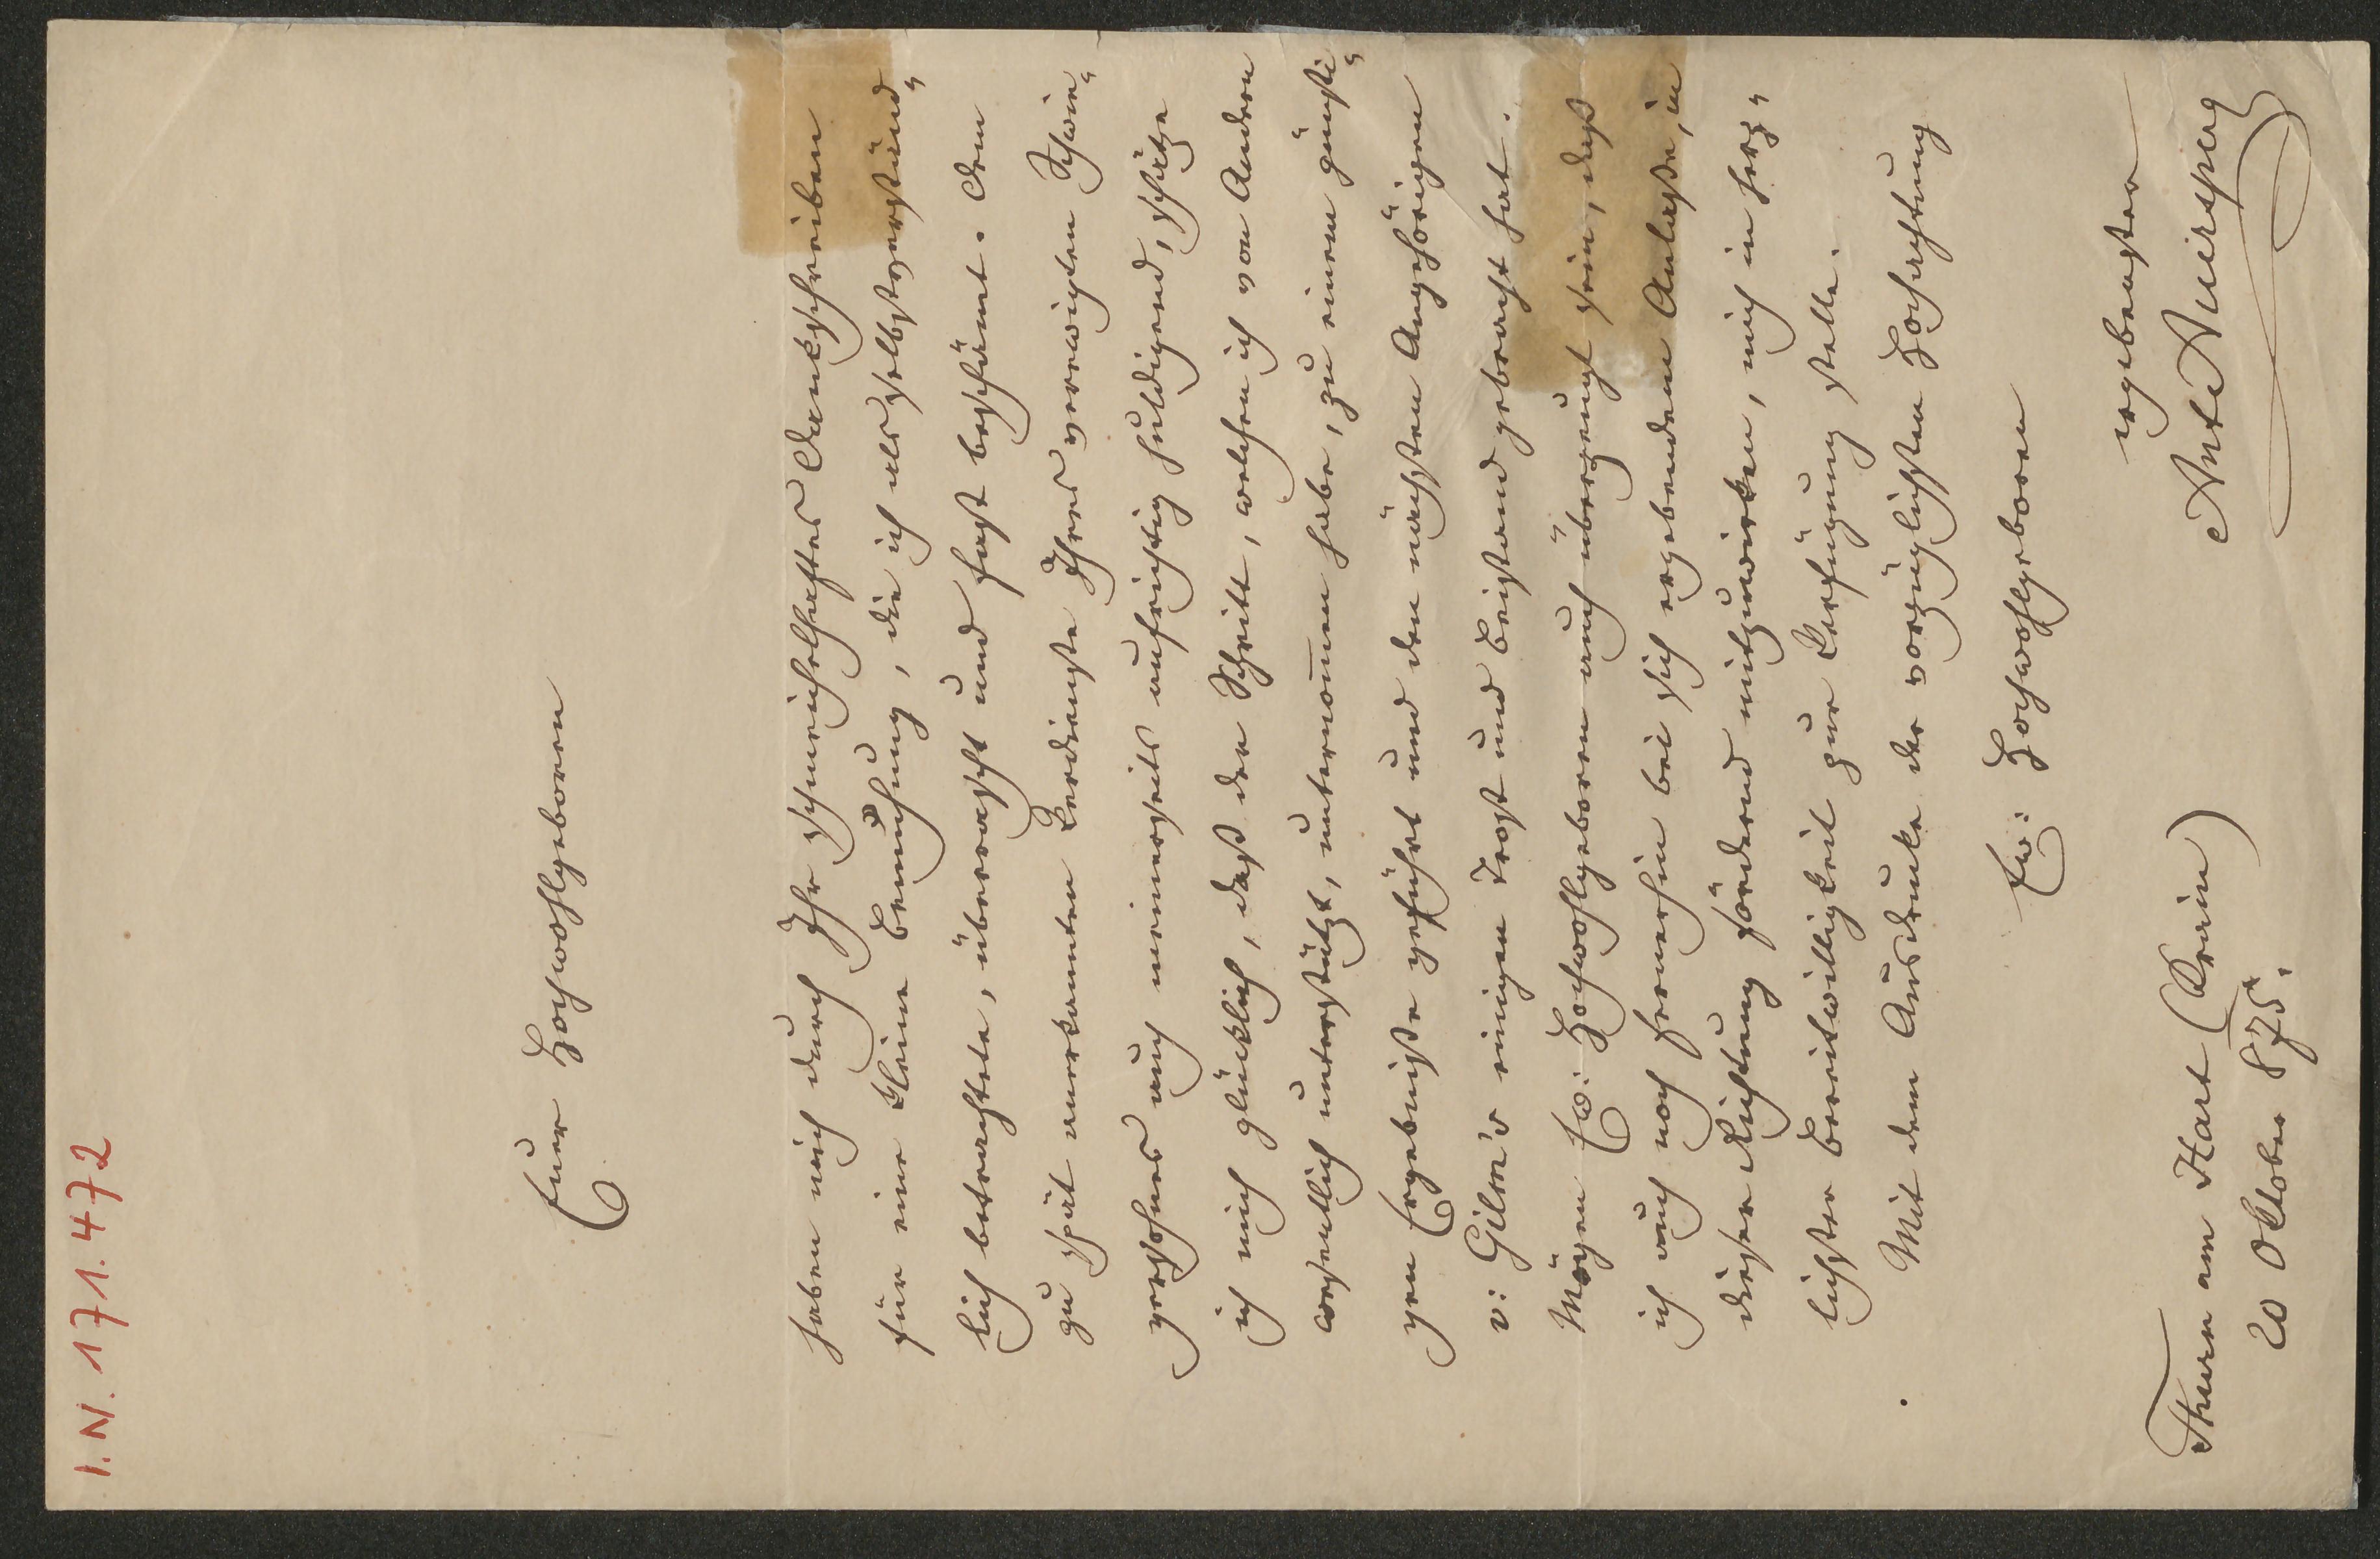 I.N. 171.472
Euer Hochwohlgeboren
haben mich durch Ihr schmeichelhaftes Dankschreiben
für eine kleine Bemühung, die ich als selbstverständ„
lich betrachtete, überrascht und fast beschämt. Dem
zu spät anerkannten Verdienste Ihres verewigten Schwie„
gersohnes auch meinerseits aufrichtig huldigend, schätze
ich mich glücklich, daß der Schritt, welchen ich von Andern
wesentlich unterstützt, unternom̄en habe, zu einem günsti„
gen Ergebniße geführt und den nächsten Angehörigen
v: Gilm's einigen Trost und Beistand gebracht hat.
Mögen Ew: Hochwohlgeboren auch überzeugt sein, daß
ich auch noch fernerhin bei sich ergebendem Anlaße, in
dieser Richtung fördernd mitzuwirken, mich in herz„
lichster Bereitwilligkeit zur Verfügung stelle.
Mit dem Ausdrucke der vorzüglichsten Hochachtung
Ew: Hochwohlgeboren
ergebenster
Ant Auersperg
Thurn am Hart (Krain)
20 Oktober 875.